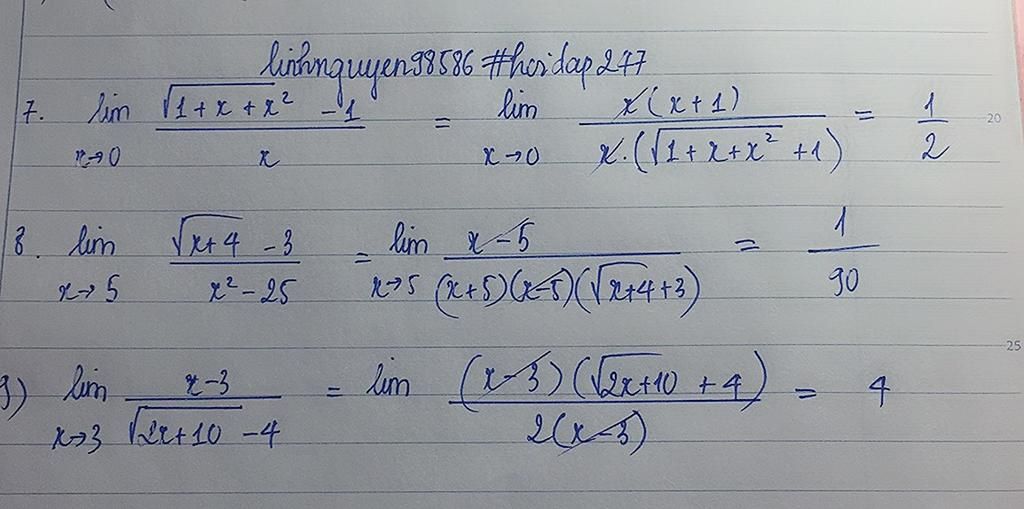 linhnguyen98586 #hoidap247
7. lim x→0 (√(1+x+x²) - 1)/x = lim x→0 x(x+1)/(x.(√(1+x+x²) +1)) = 1/2
20
8. lim x→5 (√(x+4) - 3)/(x² - 25) = lim x→5 (x-5)/((x+5)(x-5)(√(x+4)+3)) = 1/90
25
9) lim x→3 (x-3)/(√(2x+10) - 4) = lim (x-3)(√(2x+10) + 4)/(2(x-3)) = 4